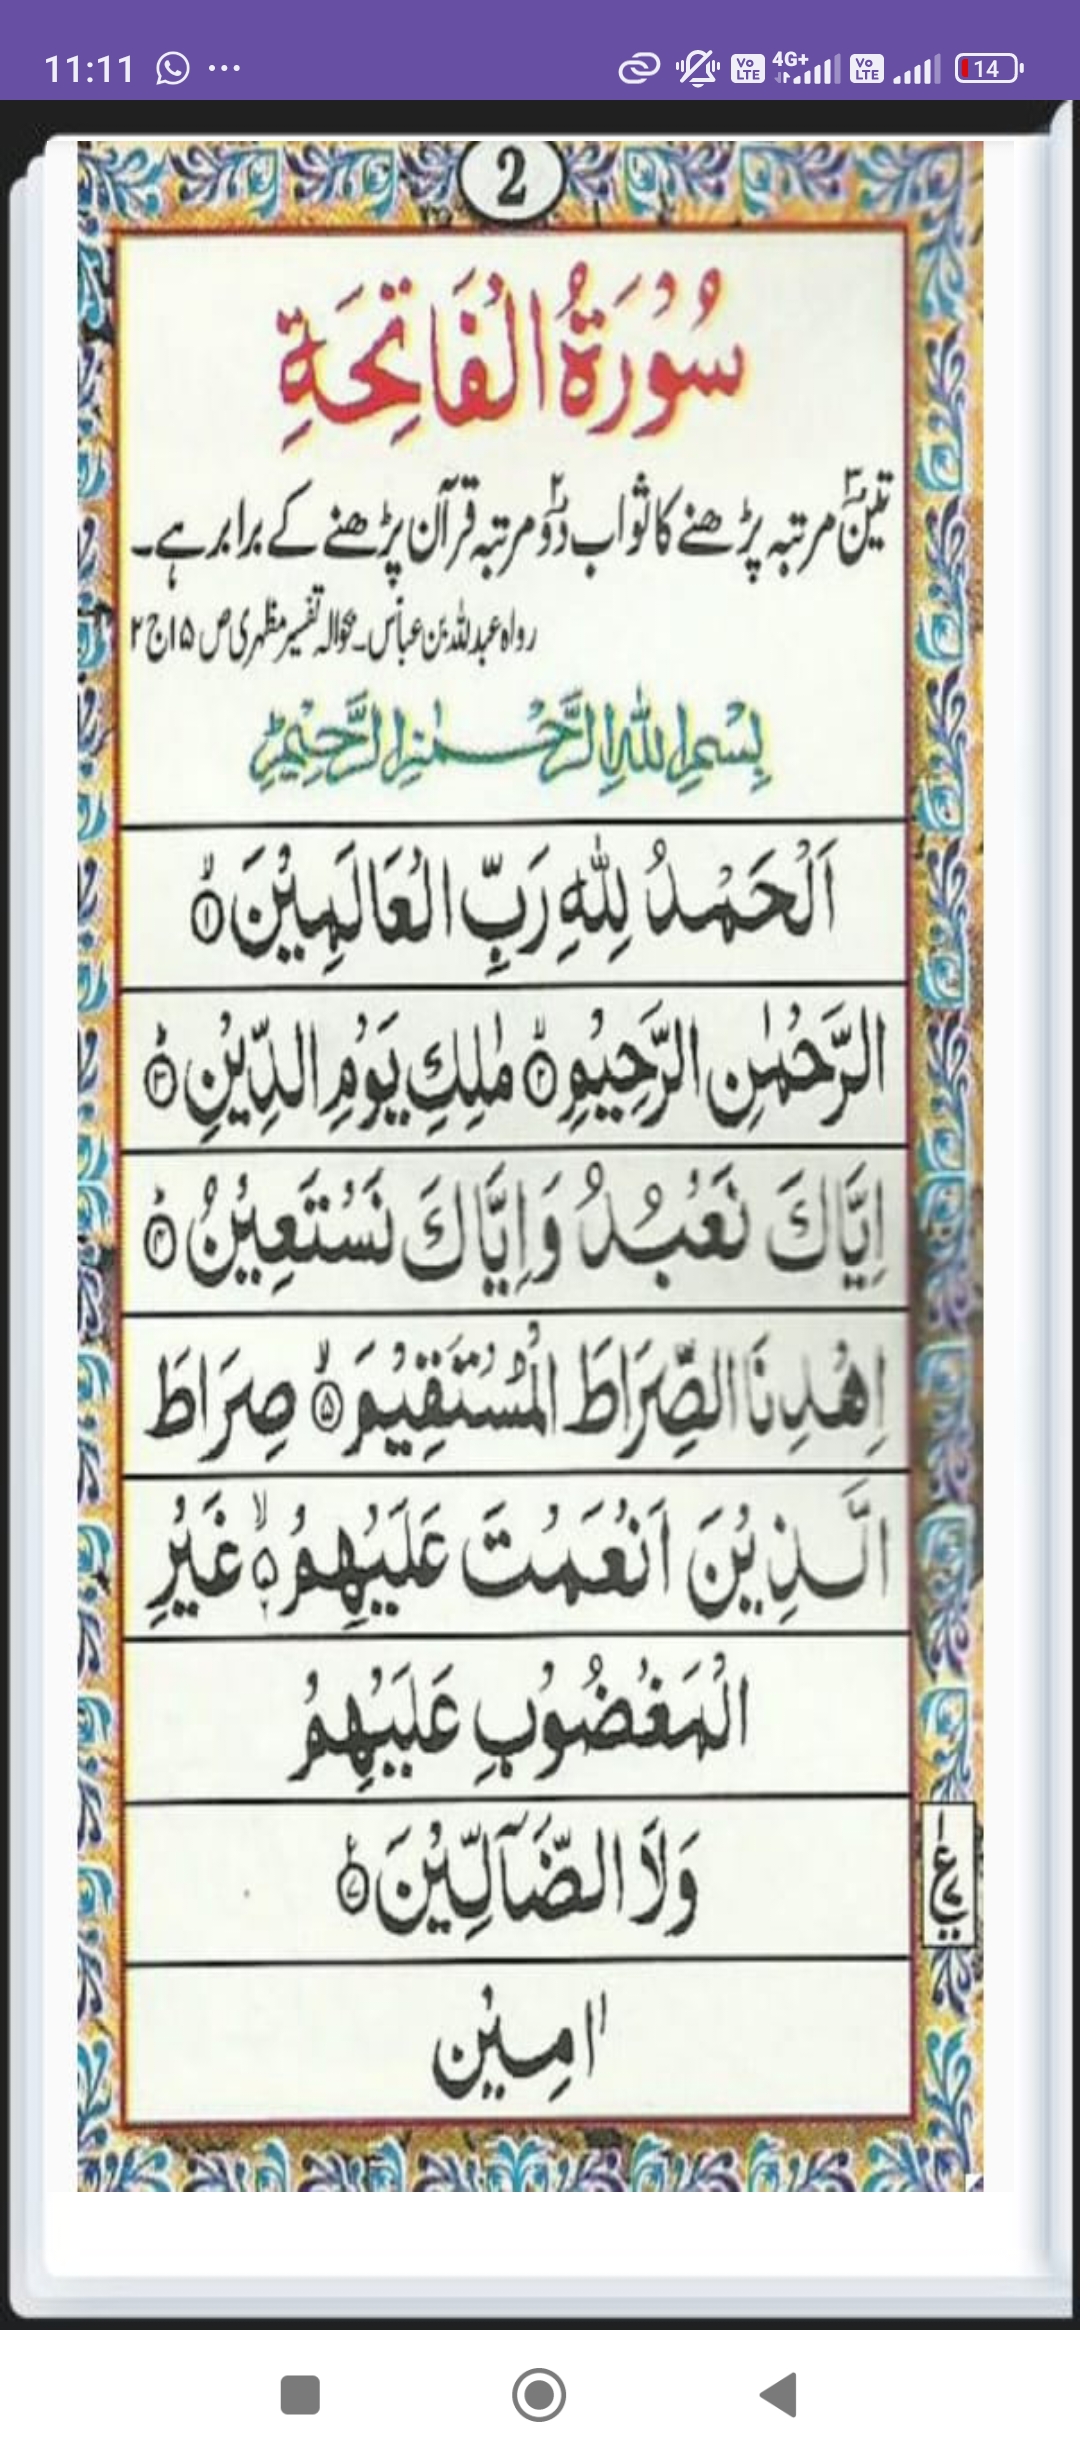 11:11
4G+
Vo LTE
Vo LTE
14
2
سُوْرَةُ الْفَاتِحَةِ
تین۳ مرتبہ پڑھنے کا ثواب دو۲ مرتبہ قرآن پڑھنے کے برابر ہے۔
رواہ عبداللہ بن عباس۔ بحوالہ تفسیر مظہری ص ۱۵ ج ۲
بِسْمِ اللهِ الرَّحْمٰنِ الرَّحِيْمِ
اَلْحَمْدُ لِلّٰهِ رَبِّ الْعَالَمِيْنَ ۙ‏﴿۱﴾
الرَّحْمٰنِ الرَّحِيْمِ ۙ‏﴿۲﴾ مٰلِكِ يَوْمِ الدِّيْنِ ؕ‏﴿۳﴾
اِيَّاكَ نَعْبُدُ وَاِيَّاكَ نَسْتَعِيْنُ ؕ‏﴿۴﴾
اِهْدِنَا الصِّرَاطَ الْمُسْتَقِيْمَ ۙ‏﴿۵﴾ صِرَاطَ
الَّذِيْنَ اَنْعَمْتَ عَلَيْهِمْ ۙ۬ۦ غَيْرِ
الْمَغْضُوْبِ عَلَيْهِمْ
وَلَا الضَّآلِّيْنَ ﴿۷﴾
اٰمِيْن
۱ ع ۷